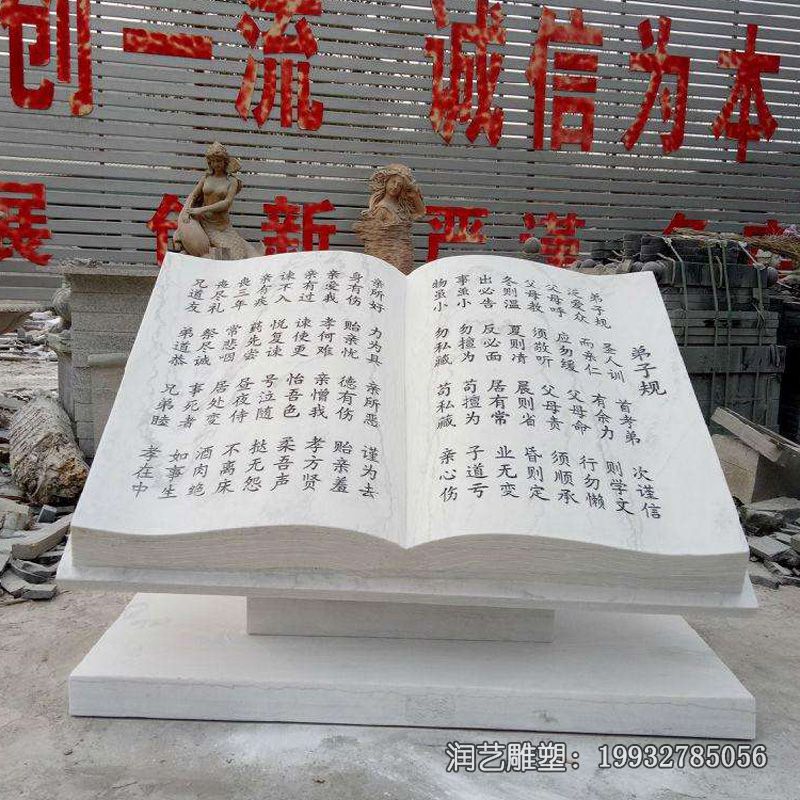 创一流 诚信为本
展 创新 严谨
弟子规
弟子规 圣人训 首孝弟 次谨信
泛爱众 而亲仁 有余力 则学文
父母呼 应勿缓 父母命 行勿懒
父母教 须敬听 父母责 须顺承
冬则温 夏则凊 晨则省 昏则定
出必告 反必面 居有常 业无变
事虽小 勿擅为 苟擅为 子道亏
物虽小 勿私藏 苟私藏 亲心伤
亲所好 力为具 亲所恶 谨为去
身有伤 贻亲忧 德有伤 贻亲羞
亲爱我 孝何难 亲憎我 孝方贤
亲有过 谏使更 怡吾色 柔吾声
谏不入 悦复谏 号泣随 挞无怨
亲有疾 药先尝 昼夜侍 不离床
丧三年 常悲咽 居处变 酒肉绝
丧尽礼 祭尽诚 事死者 如事生
兄道友 弟道恭 兄弟睦 孝在中
润艺雕塑：19932785056